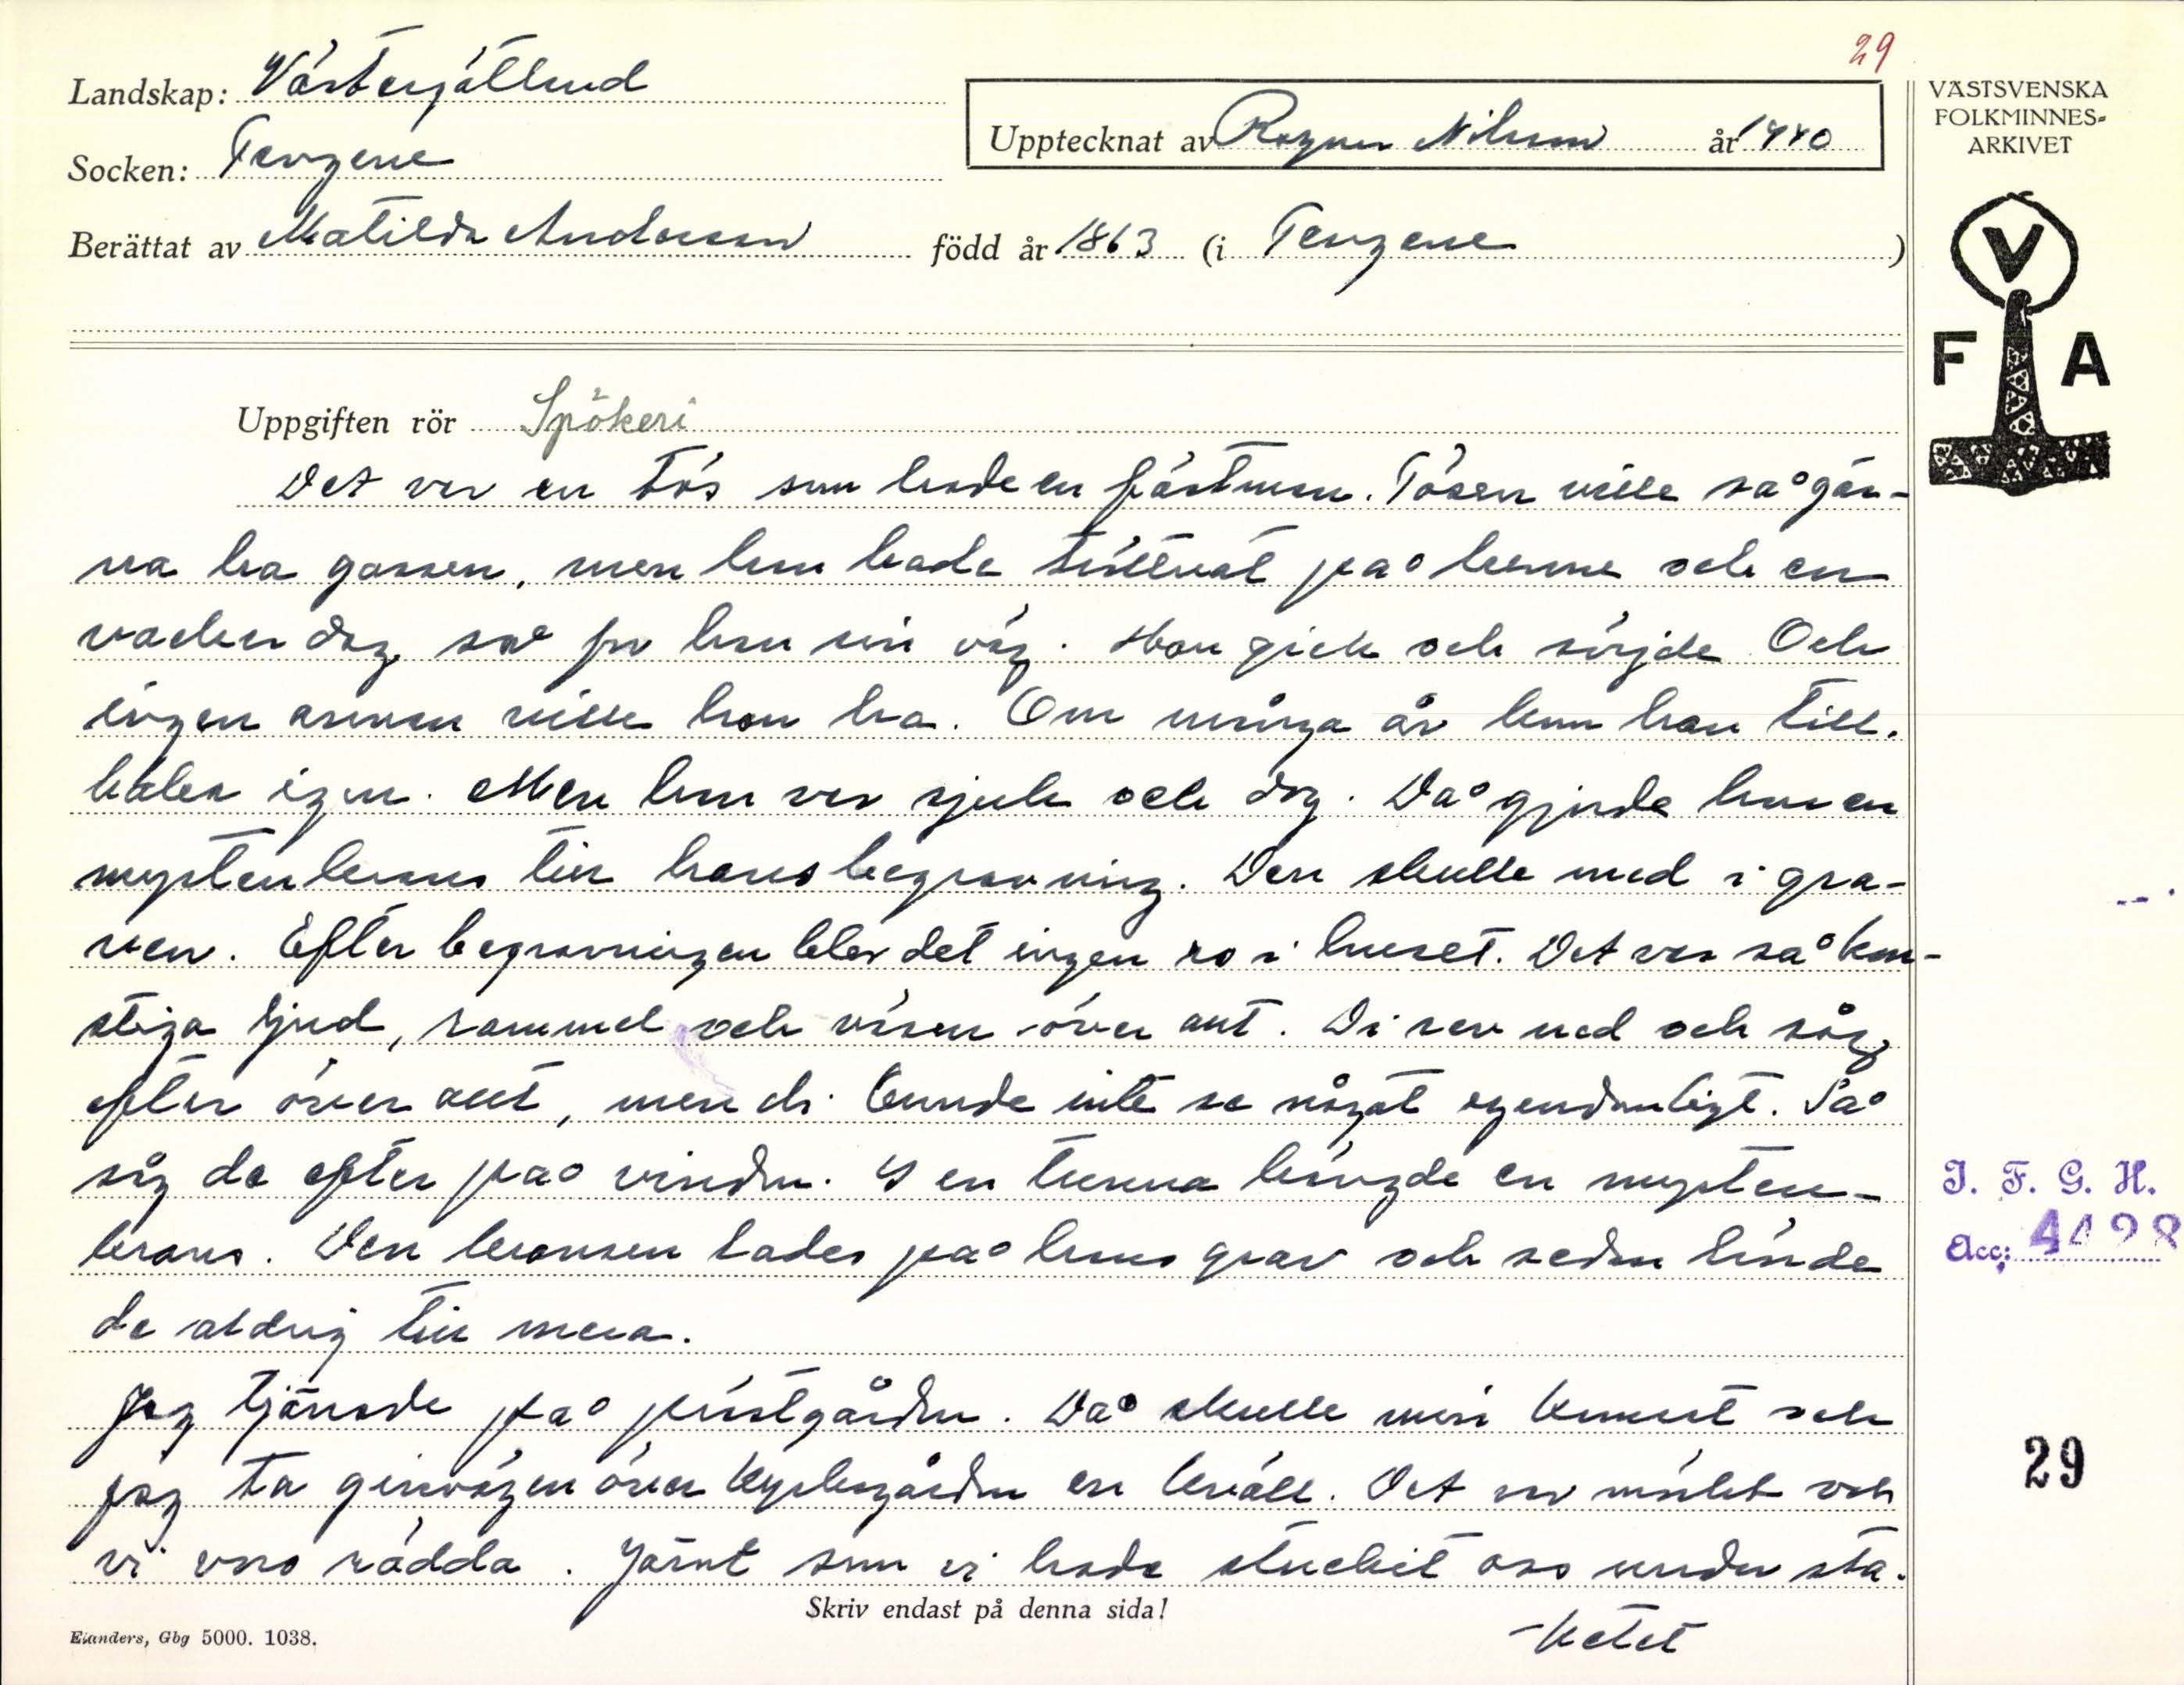 29
Landskap: Västergötland
Socken: Tengene
Upptecknat av Ragnar Nilsson år 1940
Berättat av Matilda Andersson född år 1863 (i Tengene)
VÄSTSVENSKA
FOLKMINNES-
ARKIVET
V
F A
Uppgiften rör Spökeri
Det var en tös som hade en fästman. Tösen ville så gär-
na ha gossen, men han hade tröttnat på henne och en
vacker dag så for han sin väg. Hon gick och sörjde. Och
ingen annan ville hon ha. Om många år kom han till-
baka igen. Men han var sjuk och dog. Då gjorde hon en
myrtenkrans till hans begravning. Den skulle med i gra-
ven. Efter begravningen blev det ingen ro i huset. Det var så kon-
stiga ljud, rammel och väsen över allt. Di rev ned och såg
efter över allt, men di kunde inte se något egendomligt. Så
såg de efter på vinden. I en tunna hängde en myrten-
krans. Den kransen lades på hans grav och sedan hörde
de aldrig till mera.
Jag tjänade på prästgården. Då skulle min kamrat och
jag ta genvägen över kyrkogården en kväll. Det var mörkt och
vi voro rädda. Jämt som vi hade stuckit oss under sta-
ketet
Skriv endast på denna sida!
Elanders, Gbg 5000. 1038.
I. F. G. H.
Acc: 4498
29